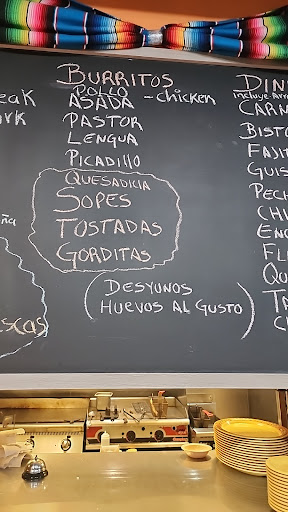 BURRITOS
POLLO
ASADA - chicken
PASTOR
LENGUA
PICADILLO
QUESADICIA
SOPES
TOSTADAS
GORDITAS
(DESYUNOS
HUEVOS AL GUSTO)
eak
rk
ña
scas
DIN
incluye-Arro
CARN
BISTO
FAJIT
GUIS
PECH
CHI
ENC
FL
QU
TA
C